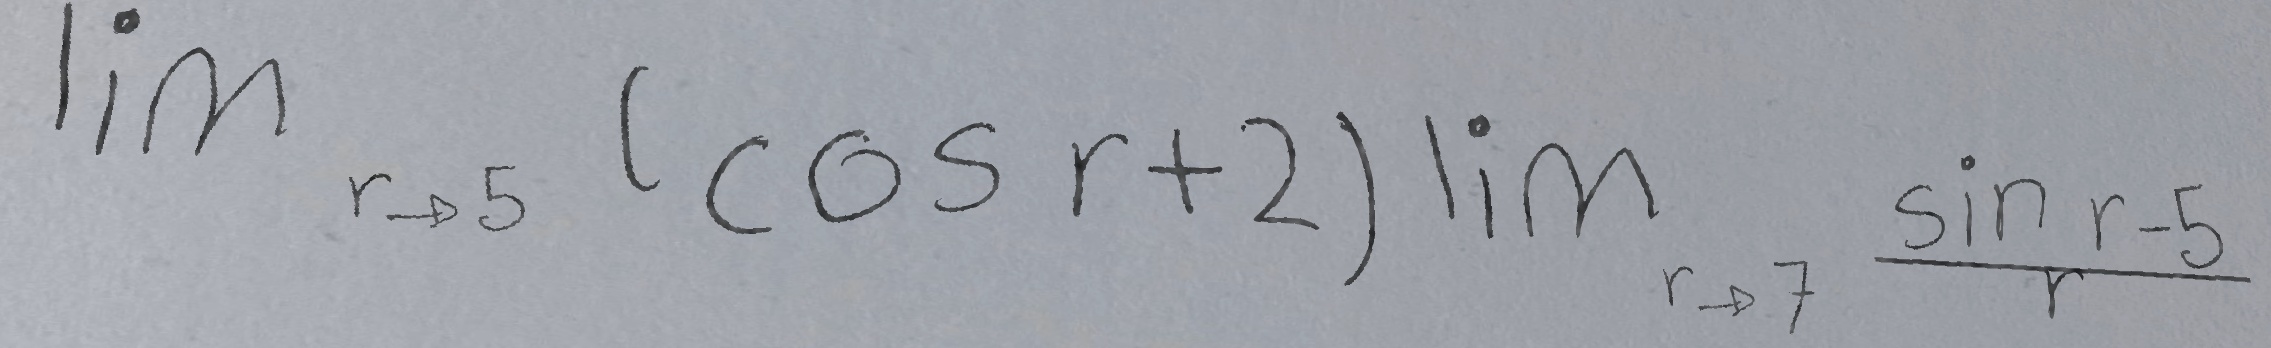 lim r→5 (cos r+2) lim r→7 (sin r-5)/r